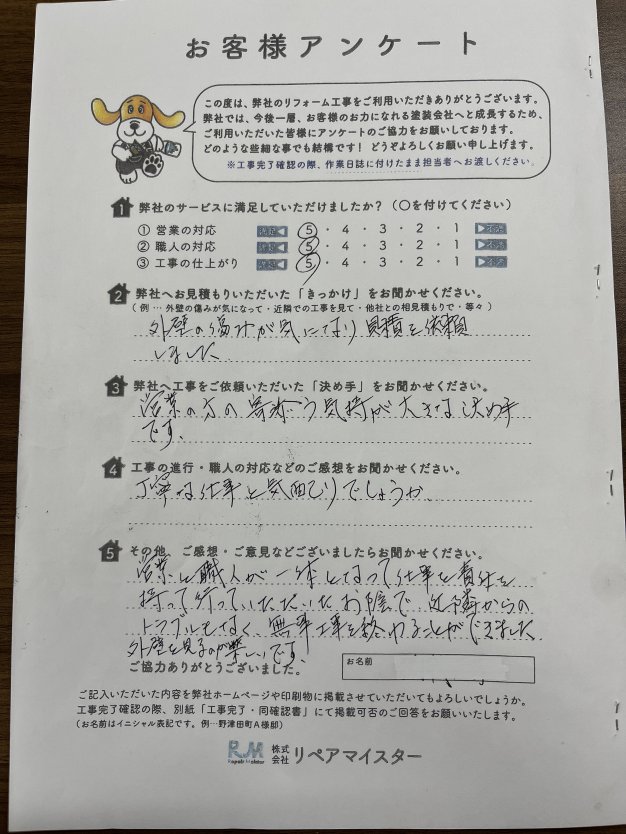 お客様アンケート
この度は、弊社のリフォーム工事をご利用いただきありがとうございます。
弊社では、今後一層、お客様のお力になれる塗装会社へと成長するため、
ご利用いただいた皆様にアンケートのご協力をお願いしております。
どのような些細な事でも結構です！ どうぞよろしくお願い申し上げます。
※工事完了確認の際、作業日誌に付けたまま担当者へお渡しください。
1 弊社のサービスに満足していただけましたか？（○を付けてください）
① 営業の対応 満足◀ 5・4・3・2・1 ▶不満
② 職人の対応 満足◀ 5・4・3・2・1 ▶不満
③ 工事の仕上がり 満足◀ 5・4・3・2・1 ▶不満
2 弊社へお見積もりいただいた「きっかけ」をお聞かせください。
（例…外壁の傷みが気になって・近隣での工事を見て・他社との相見積もりで・等々）
外壁の傷みが気になり見積を依頼
しました
3 弊社へ工事をご依頼いただいた「決め手」をお聞かせください。
営業の方の寄添う気持が大きな決め手
です.
4 工事の進行・職人の対応などのご感想をお聞かせください。
丁寧な仕事と気配りでしょうか.
5 その他、ご感想・ご意見などございましたらお聞かせください。
営業と職人が一体となって仕事を責任を
持って行っていただいたお陰で 近隣からの
トラブルもなく、無事工事を終わることができました
外壁を見るのが楽しいです.
ご協力ありがとうございました。
お名前
ご記入いただいた内容を弊社ホームページや印刷物に掲載させていただいてもよろしいでしょうか。
工事完了確認の際、別紙「工事完了・同確認書」にて掲載可否のご回答をお願いいたします。
（お名前はイニシャル表記です。例…野津田町A様邸）
RM Repair Meister 株式会社 リペアマイスター